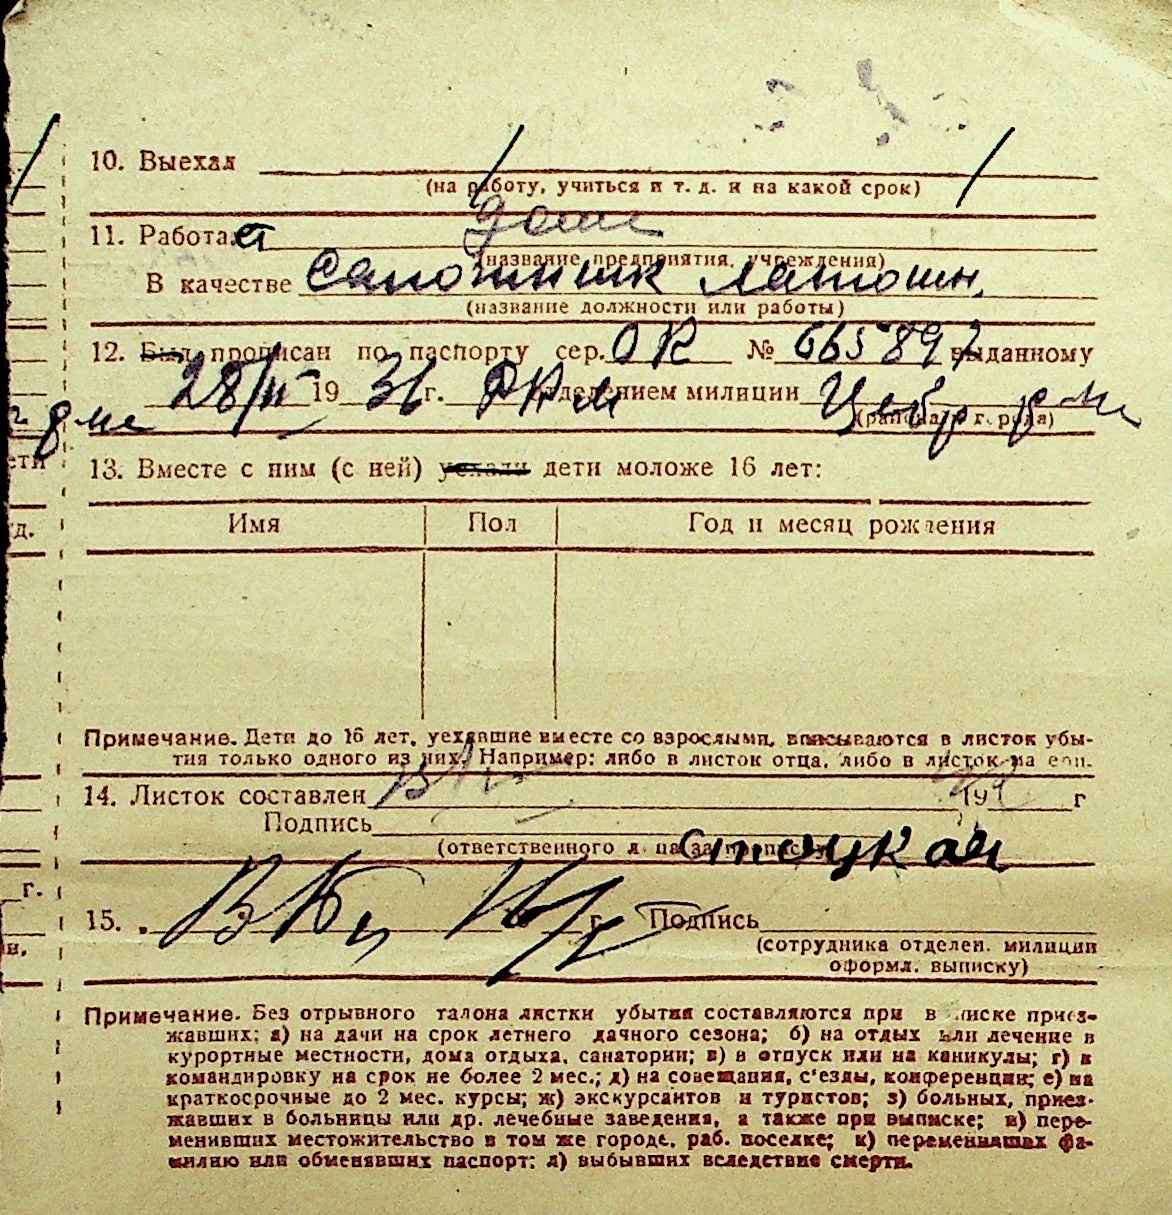 10. Выехал
(на работу, учиться и т. д. и на какой срок)
11. Работает
(название предприятия, учреждения)
В качестве Сапожник
(название должности или работы)
12. Был прописан по паспорту сер. ОК № 665897 выданному
28/II 1936 г. РКМ отделением милиции
(района и города)
13. Вместе с ним (с ней) уехали дети моложе 16 лет:
Имя Пол Год и месяц рождения
Примечание. Дети до 16 лет, уехавшие вместе со взрослыми, вписываются в листок убы-
тия только одного из них. Например: либо в листок отца, либо в листок
14. Листок составлен 19 г
Подпись
(ответственного
Стоцкая
15. г. Подпись
(сотрудника отделен. милиции
оформл. выписку)
Примечание. Без отрывного талона листки убытия составляются при выписке приез-
жавших: а) на дачи на срок летнего дачного сезона; б) на отдых или лечение в
курортные местности, дома отдыха, санатории; в) в отпуск или на каникулы; г) в
командировку на срок не более 2 мес.; д) на совещания, с'езды, конференции; е) на
краткосрочные до 2 мес. курсы; ж) экскурсантов и туристов; з) больных, приез-
жавших в больницы или др. лечебные заведения, а также при выписке; и) пере-
менивших местожительство в том же городе, раб. поселке; к) переменивших фа-
милию или обменявших паспорт; л) выбывших вследствие смерти.